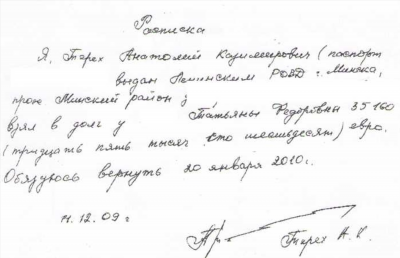 Расписка
Я, Терех Анатолий Казимирович (паспорт
выдан Ленинским РОВД г. Минска,
прож Минский район)
взял в долг у Татьяны Федоровны 35 160
(тридцать пять тысяч сто шестьдесят) евро.
Обязуюсь вернуть 20 января 2010 г.
11.12.09 г
Терех А. К.